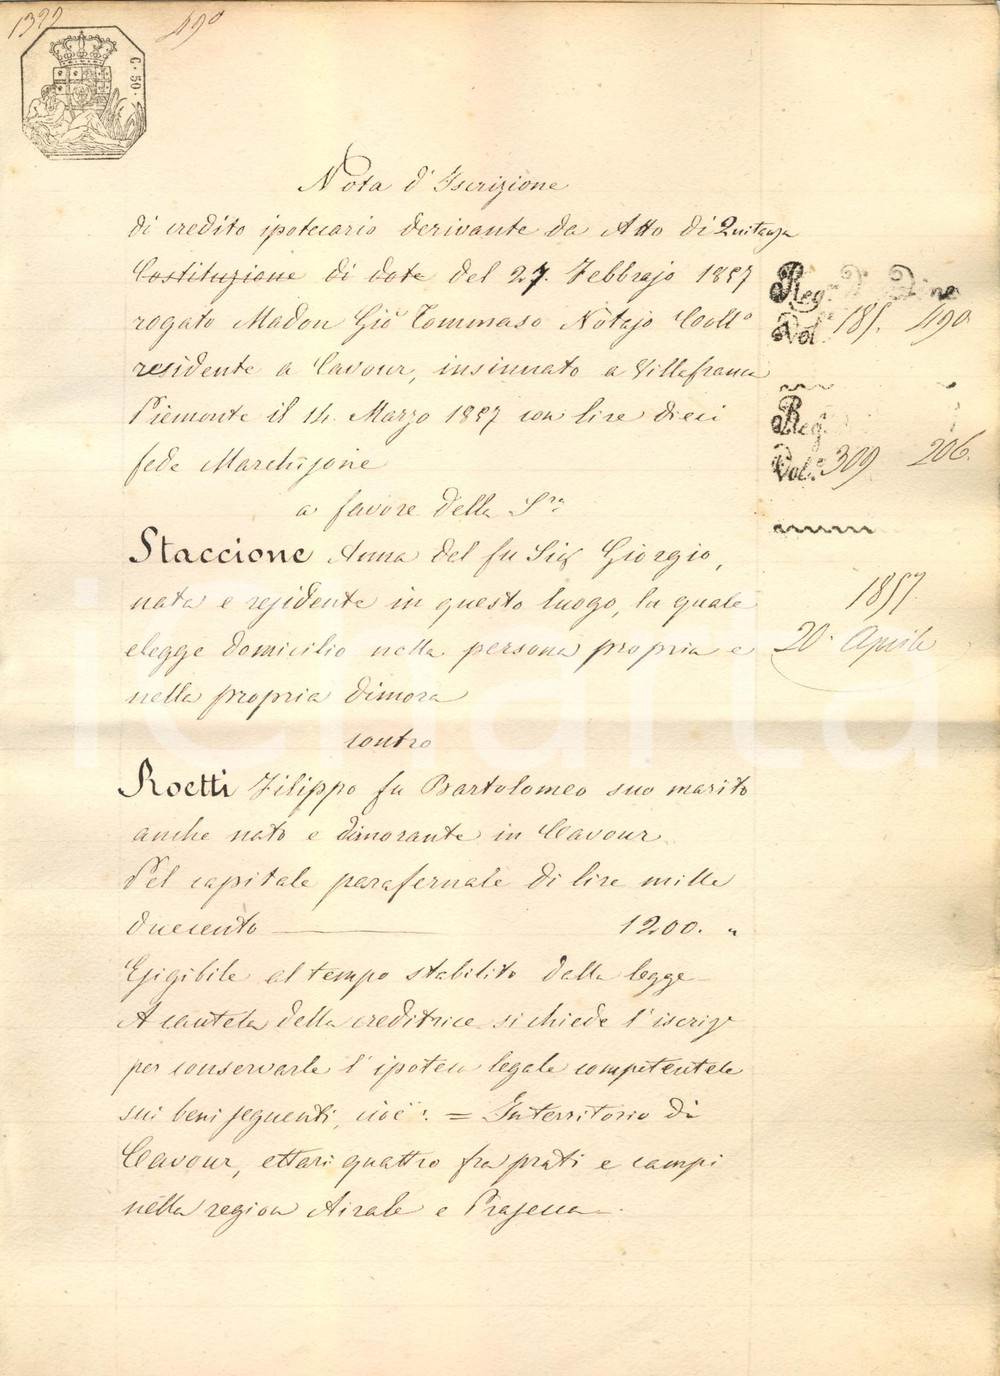 1399 490
C. 50.
Nota d'Iscrizione
di credito ipotecario derivante da Atto di Quitanza
Costituzione di dote del 27. Febbrajo 1857
rogato Madon Gio Tommaso Notajo Coll.o
residente a Cavour, insinuato a Villafranca
Piemonte il 14. Marzo 1857 con lire dieci
fede Marchisone
a favore della S.ra
Staccione Anna del fu Sig Giorgio,
nata e residente in questo luogo, la quale
elegge domicilio nella persona propria e
nella propria dimora
contro
Roetti Filippo fu Bartolomeo suo marito
anche nato e dimorante in Cavour
Pel capitale parafernale di lire mille
duecento 1200. "
Esigibile al tempo stabilito dalla legge
A cautela della creditrice si chiede l'iscriz
per conservarle l'ipoteca legale competentele
sui beni seguenti, cioè: = In territorio di
Cavour, ettari quattro fra prati e campi
nella region Airale e
Reg.o d'Ordine
Vol. 181. 490
Reg.
Vol. 309 206.
1857.
20. Aprile